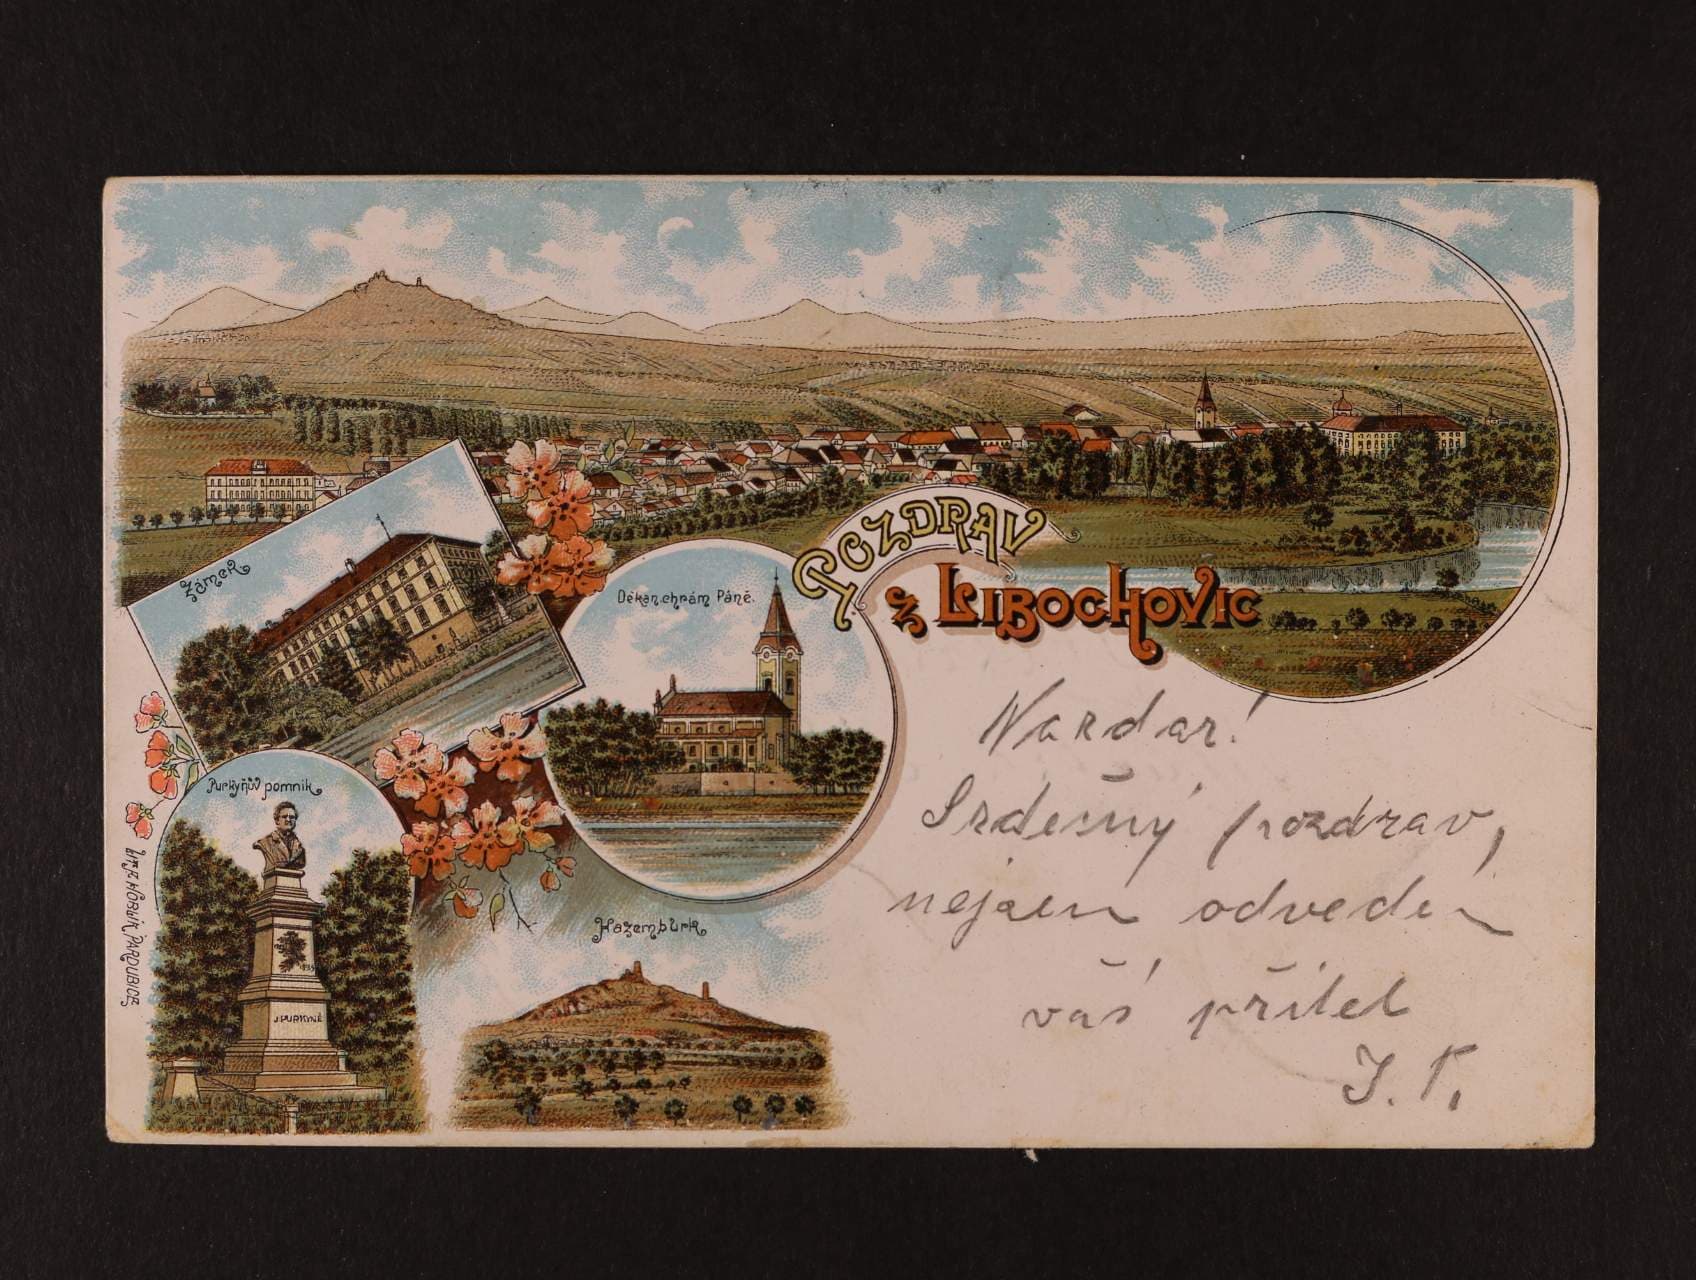 Pozdrav
z Libochovic
Zámek
Děkan. chrám Páně.
Purkyňův pomník
J. PURKYNĚ
Hazemburk
Nazdar!
Srdečný pozdrav,
nejsem odveden
váš přítel
J. T.